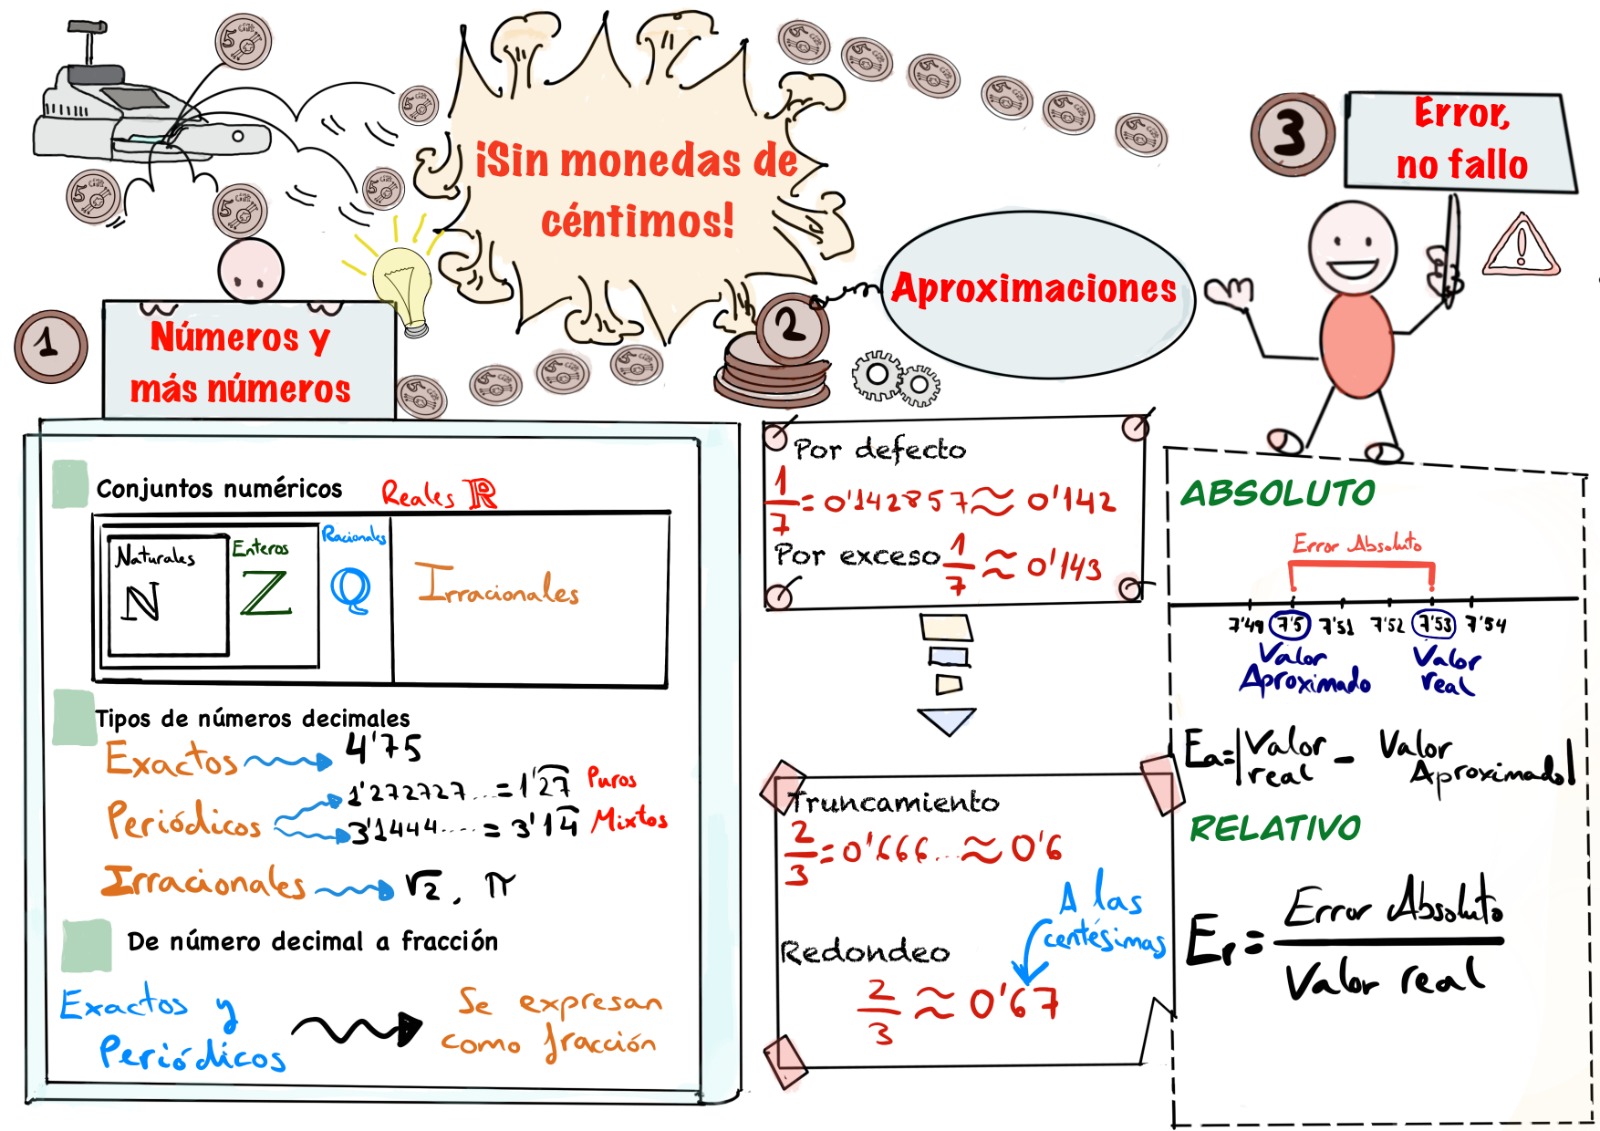 ¡Sin monedas de
céntimos!
1
Números y
más números
Conjuntos numéricos
Reales ℝ
Naturales
N
Enteros
Z
Racionales
Q
Irracionales
Tipos de números decimales
Exactos
4'75
Periódicos
1'272727...=1'2͡7 Puros
3'1444.... = 3'14̑ Mixtos
Irracionales
√2, π
De número decimal a fracción
Exactos y
Periódicos
Se expresan
como fracción
2
Aproximaciones
Por defecto
1/7 = 0'142857 ≈ 0'142
Por exceso 1/7 ≈ 0'143
Truncamiento
2/3 = 0'666... ≈ 0'6
A las
centésimas
Redondeo
2/3 ≈ 0'67
3
Error,
no fallo
ABSOLUTO
Error Absoluto
7'49 7'5 7'51 7'52 7'53 7'54
Valor
Aproximado
Valor
real
Ea=|Valor real - Valor Aproximado|
RELATIVO
Er = Error Absoluto / Valor real